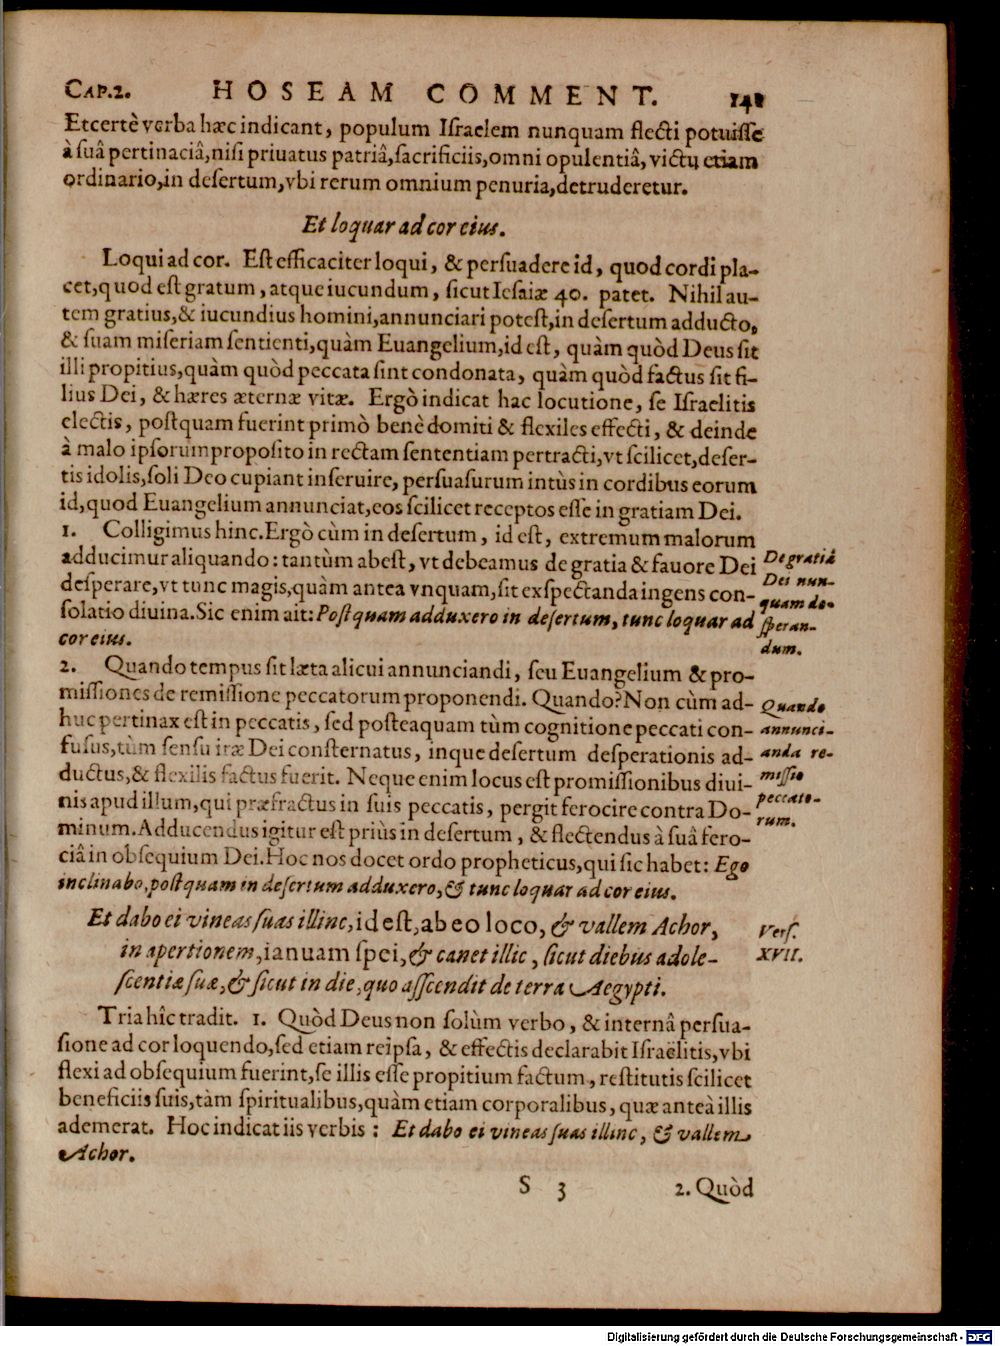 CAP. 2. HOSEAM COMMENT. 141
Et certè verba hæc indicant, populum Iſraelem nunquam flecti potuiſſe
à ſuâ pertinaciâ, niſi priuatus patriâ, ſacrificiis, omni opulentiâ, victu etiam
ordinario, in deſertum, vbi rerum omnium penuria, detruderetur.
Et loquar ad cor eius.
Loqui ad cor. Eſt efficaciter loqui, & perſuadere id, quod cordi pla-
cet, quod eſt gratum, atque iucundum, ſicut Ieſaiæ 40. patet. Nihil au-
tem gratius, & iucundius homini, annunciari poteſt, in deſertum adducto,
& ſuam miſeriam ſentienti, quàm Euangelium, id eſt, quàm quòd Deus ſit
illi propitius, quàm quòd peccata ſint condonata, quàm quòd factus ſit fi-
lius Dei, & hæres æternæ vitæ. Ergò indicat hac locutione, ſe Iſraelitis
electis, poſtquam fuerint primò benè domiti & flexiles effecti, & deinde
à malo ipſorum propoſito in rectam ſententiam pertracti, vt ſcilicet, deſer-
tis idolis, ſoli Deo cupiant inſeruire, perſuaſurum intùs in cordibus eorum
id, quod Euangelium annunciat, eos ſcilicet receptos eſſe in gratiam Dei.
1. Colligimus hinc. Ergò cùm in deſertum, id eſt, extremum malorum
adducimur aliquando: tantùm abeſt, vt debeamus de gratia & fauore Dei
deſperare, vt tunc magis, quàm antea vnquam, ſit exſpectanda ingens con-
ſolatio diuina. Sic enim ait: Poſtquam adduxero in deſertum, tunc loquar ad
cor eius.
De gratiâ
Dei nun-
quam de-
ſperan-
dum.
2. Quando tempus ſit læta alicui annunciandi, ſeu Euangelium & pro-
miſſiones de remiſſione peccatorum proponendi. Quando? Non cùm ad-
huc pertinax eſt in peccatis, ſed poſteaquam tùm cognitione peccati con-
fuſus, tùm ſenſu iræ Dei conſternatus, inque deſertum deſperationis ad-
ductus, & flexilis factus fuerit. Neque enim locus eſt promiſſionibus diui-
nis apud illum, qui præfractus in ſuis peccatis, pergit ferocire contra Do-
minum. Adducendus igitur eſt priùs in deſertum, & flectendus à ſuâ fero-
ciâ in obſequium Dei. Hoc nos docet ordo propheticus, qui ſic habet: Ego
inclinabo, poſtquam in deſertum adduxero, & tunc loquar ad cor eius.
Quando
annunci-
anda re-
miſſio
peccato-
rum.
Et dabo ei vineas ſuas illinc, id eſt, ab eo loco, & vallem Achor,
in apertionem, ianuam ſpei, & canet illic, ſicut diebus adole-
ſcentiæ ſuæ, & ſicut in die, quo aſſcendit de terra Aegypti.
Verſ.
XVII.
Tria hîc tradit. 1. Quòd Deus non ſolùm verbo, & internâ perſua-
ſione ad cor loquendo, ſed etiam reipſa, & effectis declarabit Iſraëlitis, vbi
flexi ad obſequium fuerint, ſe illis eſſe propitium factum, reſtitutis ſcilicet
beneficiis ſuis, tàm ſpiritualibus, quàm etiam corporalibus, quæ anteà illis
ademerat. Hoc indicat iis verbis: Et dabo ei vineas ſuas illinc, & vallem
Achor.
S 3 2. Quòd
Digitalisierung gefördert durch die Deutsche Forschungsgemeinschaft - DFG